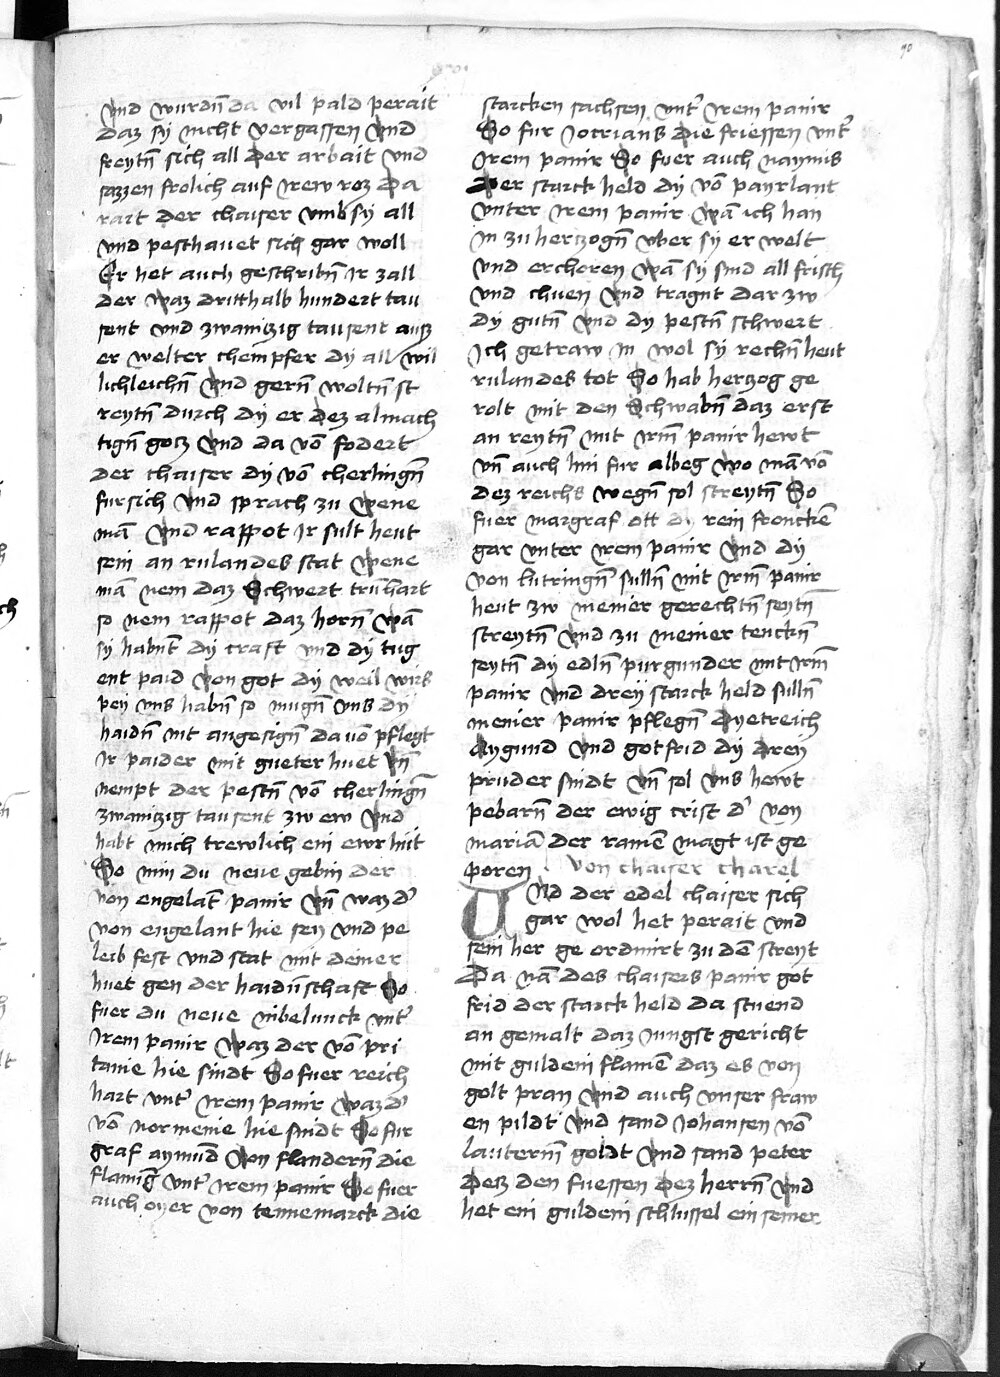 70
vnd wurdn̄ da vil pald perait
daz sy nicht vergassen vnd
freytn̄ sich all der arbait vnd
sazzen frolich auf irew roz Da
rait der chaiser vmb sy all
vnd peschauet sich gar woll
Er het auch geschritn̄ ir zall
der waz dritthalb hundert tau
sent vnd zwaintzig tausent ausz
er welter chempfer dy all wil
lichleichn̄ vnd gern̄ woltn̄ st
reytn̄ durch dy er dez almach
tign̄ gotz vnd da vō fodert
der chaiser dy vō cherlingn̄
fur sich vnd sprach zu wene
mā vnd rappot Ir sult heut
sein an rulandes stat wene
mā nem daz Schwert trūhart
so nem rappot daz horn̄ wā
sy habn̄t dy craft vnd dy tug
ent paid von got dy weil wirs
pey vns habn̄ so mugn̄ vns dy
haidn̄ nit angesign̄ da vō pflegt
ir paider mit gueter huet vn̄
nempt der pestn̄ vō cherlingn̄
zwaintzig tausent zw ew vnd
habt mich trewlich ein ewr hūt
So nim du neue gebin der
von engelāt panir vn̄ waz d'
von engelant hie sey vnd pe
leib fest vnd stat mit deiner
huet gen der haidn̄schaft So
fuer du neue nibelunck vnt'
irem panir waz der vō pri
tanie hie sindt So fuer reich
hart vnt' irem panir waz d'
vō normenie hie sindt So fur
graf aymūd von flandern̄ die
flamiḡ vnt' irem panir So fuer
auch oyer von tennemarck die
starcken sachsen vnt' irem panir
So fur Jocrians die friessen vnt'
irem panir So fuer auch naymis
der starck held dy vō payrlant
vnter irem panir wā ich han
in zu hertzogn̄ vber sy er welt
vnd ercheren wā sy sind all frisch
vnd chuen vnd tragnt dar zw
dy gutn̄ vnd dy pestn̄ schwert
Ich getraw in wol sy rechn̄ heut
rulandes tot So hab hertzog ge
rolt mit den Schwabn̄ daz erst
an reytn̄ mit irm̄ panir hewt
vn̄ auch hin fur albeg wo mā vō
dez reichs wegn̄ sol streytn̄ So
fuer margraf ott dy rein fronckē
gar vnter irem panir vnd dy
von lutringn̄ sulln̄ mit irm̄ panir
heut zw meiner gerechtn̄ seytn̄
streytn̄ vnd zu meiner tenckn̄
seytn̄ dy edln̄ purgunder mit irm̄
panir vnd dreÿ starck held sulln̄
meiner panir pflegn̄ dyetreich
Aygund vnd gotfrid dy drey
pruder sindt vn̄ sol vns hewt
pebarn̄ der ewig crist d' von
mariā der rainē magt ist ge
poren Von chaiser charel
Vnd der edel chaiser sich
gar wol het perait vnd
sein her ge ordnirt zu dē streyt
Da nā des chaisers panir got
frid der starck held da stuend
an gemalt daz jungst gericht
mit guldein flamē daz es von
golt pran vnd auch vnser fraw
en pildt vnd sand Johansen vō
lauterm̄ goldt vnd sand peter
Desz den fuessen dez herrn̄ vnd
het ein guldein schlussel ein seiner